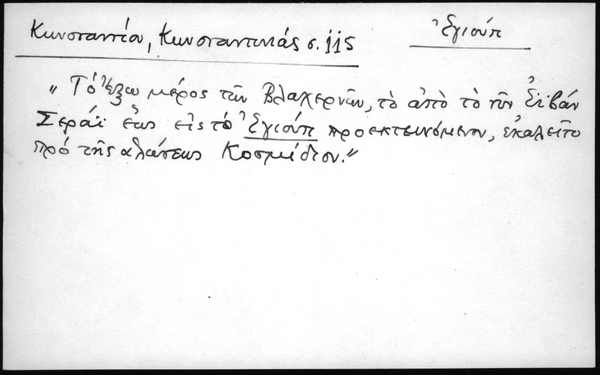 Κωνσταντίου, Κωνσταντινιάς σ. 115
Ἐγιούπ
„ Τὸ ἔξω μέρος τῶν Βλαχερνῶν, τὸ ἀπὸ τὸ νῦν Ἐϊβὰν
Σεράϊ ἕως εἰς τὸ Ἐγιούπ προεκτεινόμενον, ἐκαλεῖτο
πρὸ τῆς ἁλώσεως Κοσμίδιον."